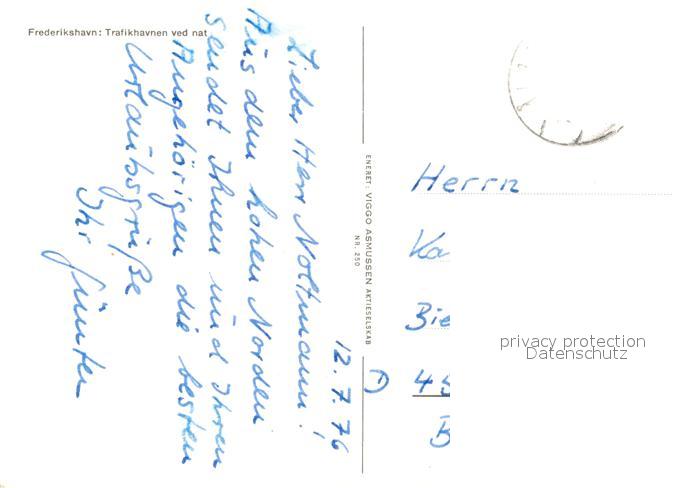 Frederikshavn: Trafikhavnen ved nat
12.7.76
Lieber Herr Noltmann!
Aus dem hohen Norden
sendet Ihnen und Ihren
Angehörigen die besten
Urlaubsgrüße
Ihr Günter
ENERET: VIGGO ASMUSSEN AKTIESELSKAB
NR. 250
Herrn
Ka
Bie
D 45
B
privacy protection
Datenschutz